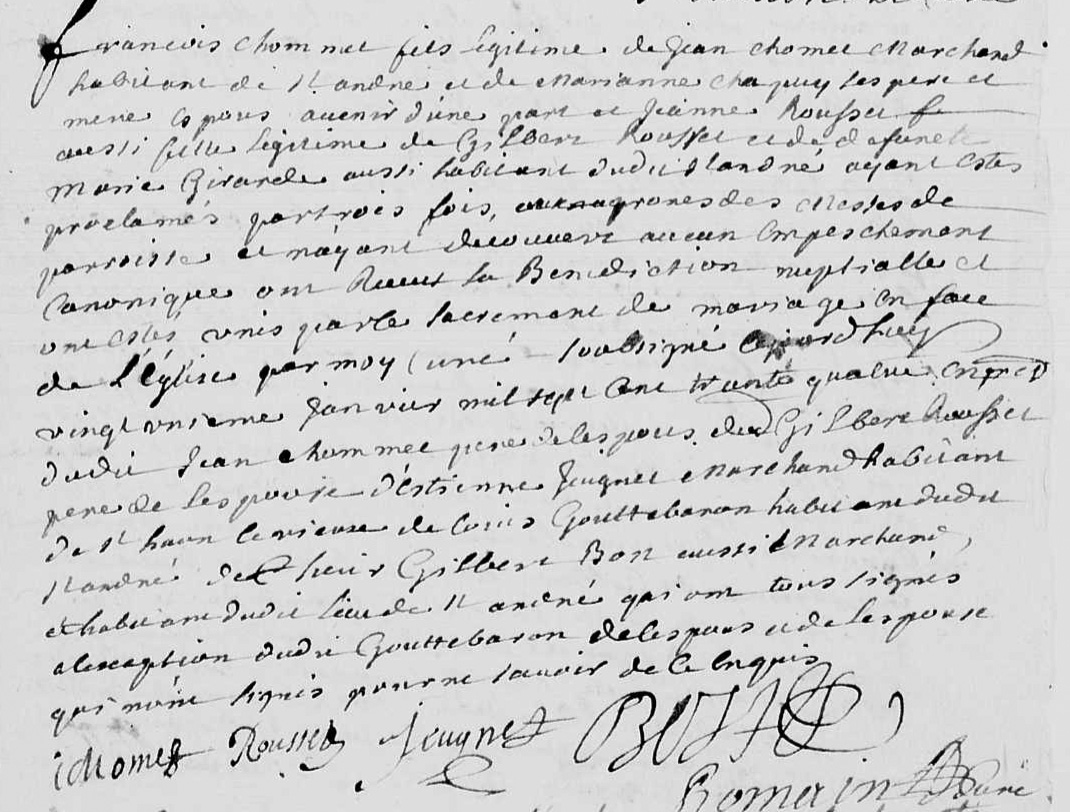 francois chommet fils legitime de Jean chomet Marchand
habitant de st andré et de Marianne chapuy ses pere et
mere espoux avenir d'une part et Jeanne Rousset
aussi fille legitime de Gilbert Rousset et de defunte
Marie Girarde aussi habitant dudit st andré ayant estes
proclamés par trois fois, aux prones des Messes de
parroisse et n'ayant decouvert aucun empeschement
Canonique ont Receus la Benediction nuptialle et
ont estés unis par le sacrement de mariage en face
de L'Église par moy Curé soubsigné ajourdhuy
vingt unieme Janvier mil sept Cent trante quatre en pnce
dudit Jean chommet pere de lespoux dud Gilbert Rousset
pere de Lespouse d'Estienne Jeugnet Marchand habitant
de st haon le vieux de Gouttebaron habitant dudit
st andré de sieur Gilbert Bost aussi Marchand
et habitant dudit lieu de st andré qui ont tous signés
alexception dudit Gouttebaron de lespoux et de Lespouse
qui n'ont signés pour ne savoir de ce enquis
Chomet Rousset Jeugnet BOST
Romain Curé